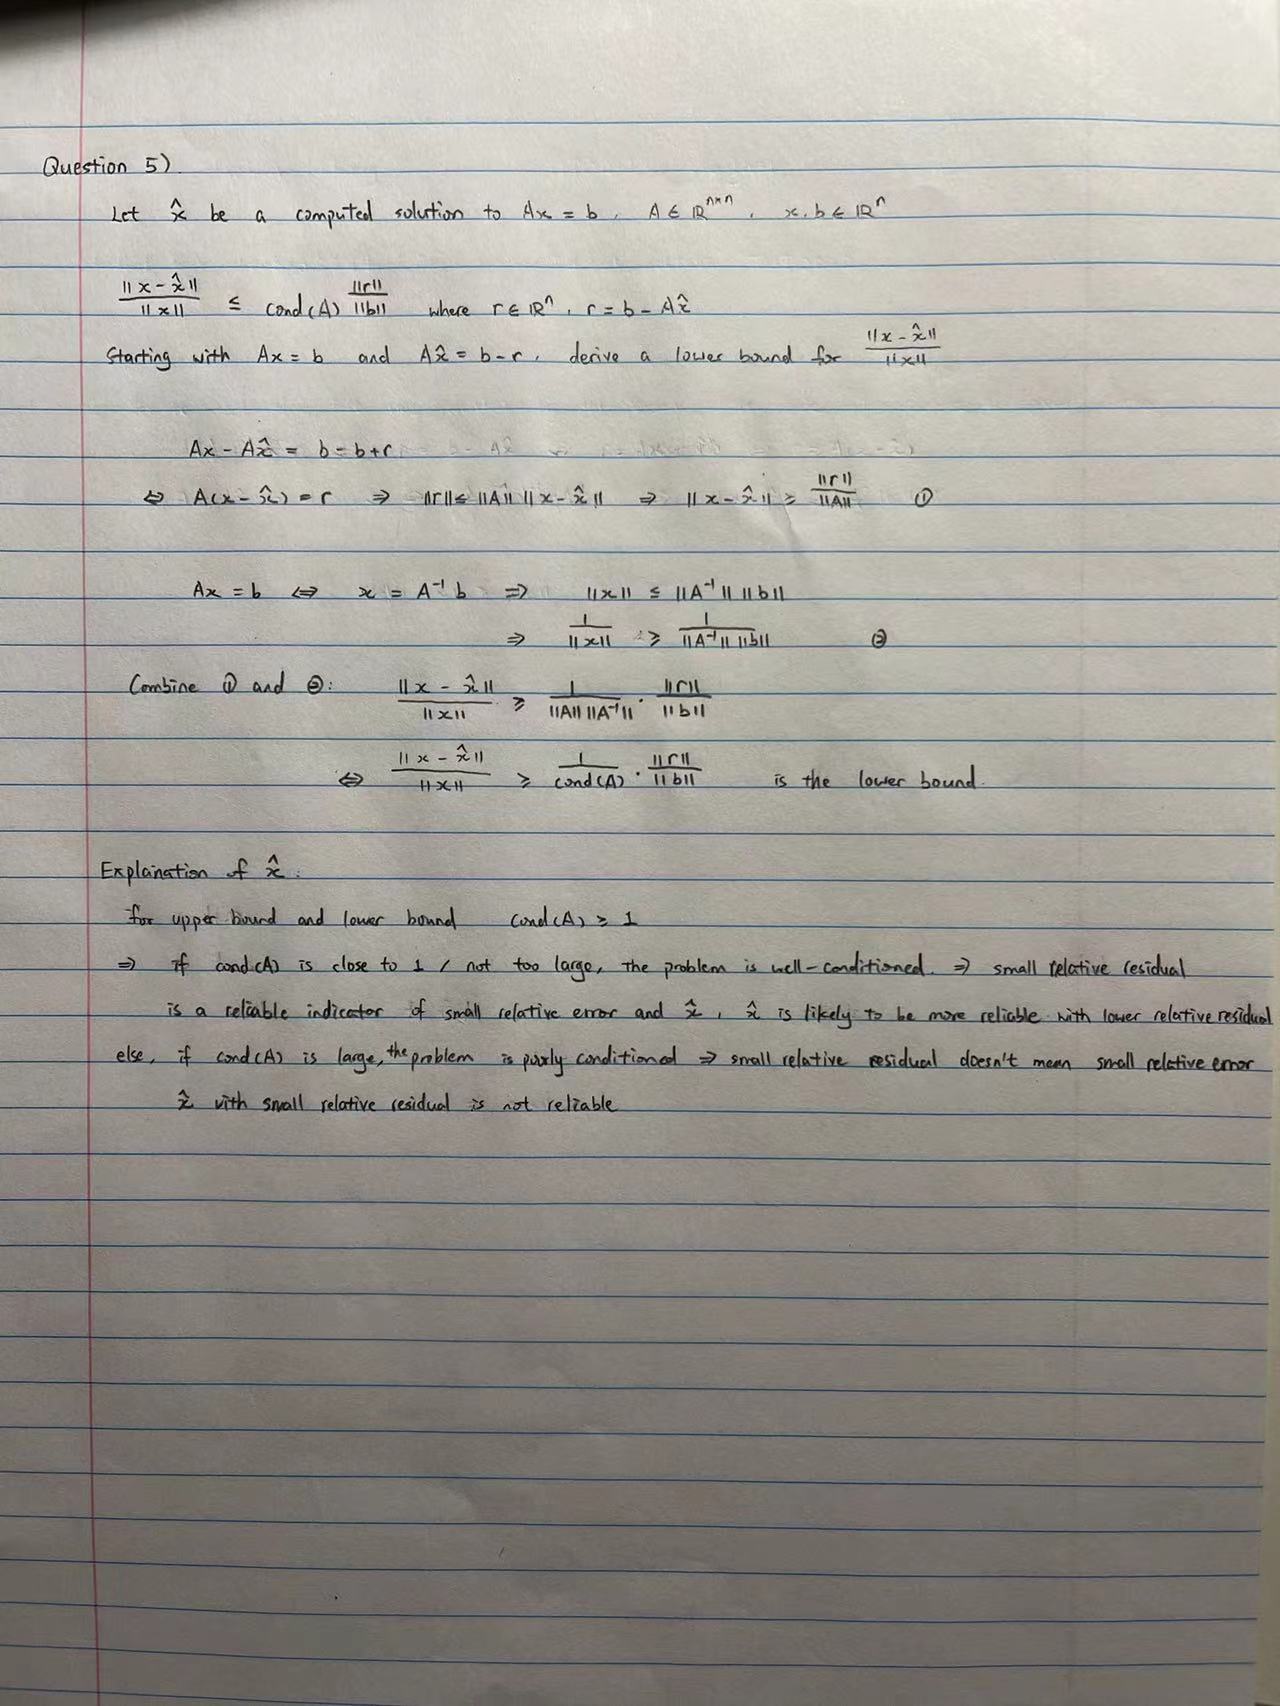 Question 5)
Let x̂ be a computed solution to Ax = b, A ∈ ℝⁿˣⁿ, x, b ∈ ℝⁿ
||x - x̂|| / ||x|| ≤ cond(A) ||r|| / ||b|| where r ∈ ℝⁿ, r = b - Ax̂
Starting with Ax = b and Ax̂ = b - r, derive a lower bound for ||x - x̂|| / ||x||
Ax - Ax̂ = b - b + r
⇔ A(x - x̂) = r ⇒ ||r|| ≤ ||A|| ||x - x̂|| ⇒ ||x - x̂|| ≥ ||r|| / ||A|| ①
Ax = b ⇔ x = A⁻¹ b ⇒ ||x|| ≤ ||A⁻¹|| ||b||
⇒ 1 / ||x|| ≥ 1 / ||A⁻¹|| ||b|| ②
Combine ① and ②: ||x - x̂|| / ||x|| ≥ 1 / ||A|| ||A⁻¹|| · ||r|| / ||b||
⇔ ||x - x̂|| / ||x|| ≥ 1 / cond(A) · ||r|| / ||b|| is the lower bound.
Explaination of x̂:
for upper bound and lower bound cond(A) ≥ 1
⇒ if cond(A) is close to 1 / not too large, the problem is well-conditioned. ⇒ small relative residual
is a reliable indicator of small relative error and x̂, x̂ is likely to be more reliable with lower relative residual
else, if cond(A) is large, the problem is poorly conditioned ⇒ small relative residual doesn't mean small relative error
x̂ with small relative residual is not reliable